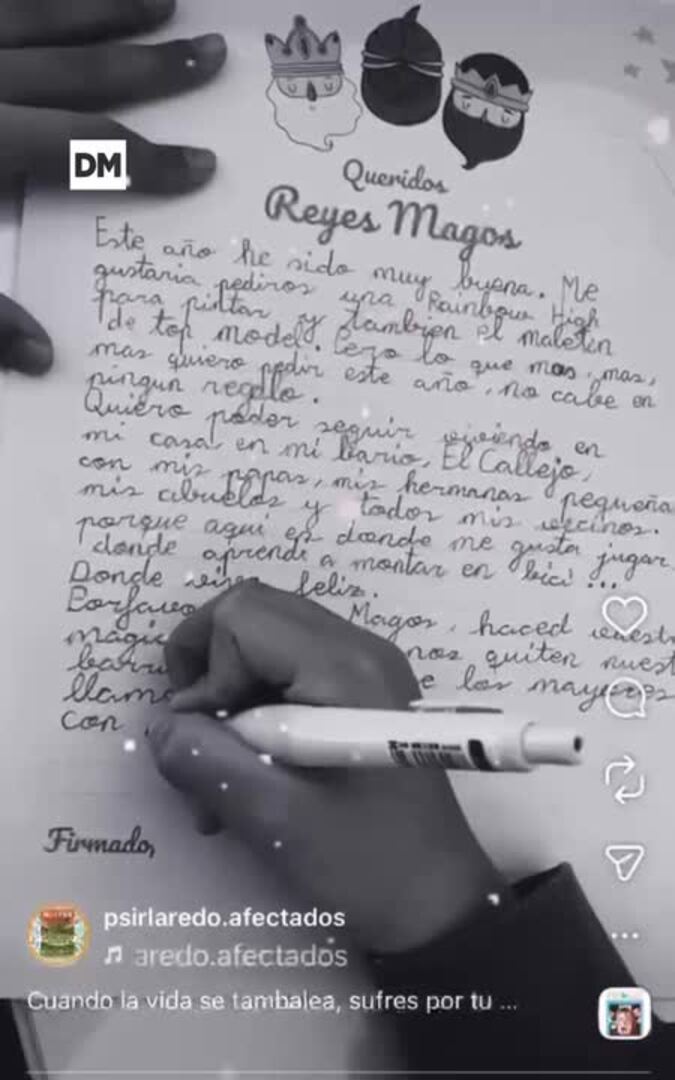 DM
Queridos
Reyes Magos
Este año he sido muy buena. Me
gustaria pediros una Rainbow High
para pintar y tambien el maletin
de top model. Pero lo que mas, mas,
mas quiero pedir este año, no cabe en
ningun regalo.
Quiero poder seguir viviendo en
mi casa, en mi barrio, El Callejo,
con mis papas, mis hermanas pequeña
mis abuelos y todos mis vecinos.
porque aquí es donde me gusta jugar
donde aprendi a montar en bici...
Donde feliz.
Porfavo Magos, haced vuest
magic nos quiten nuest
barri e los mayores
llama
con
Firmado,
psirlaredo.afectados
aredo.afectados
Cuando la vida se tambalea, sufres por tu ...